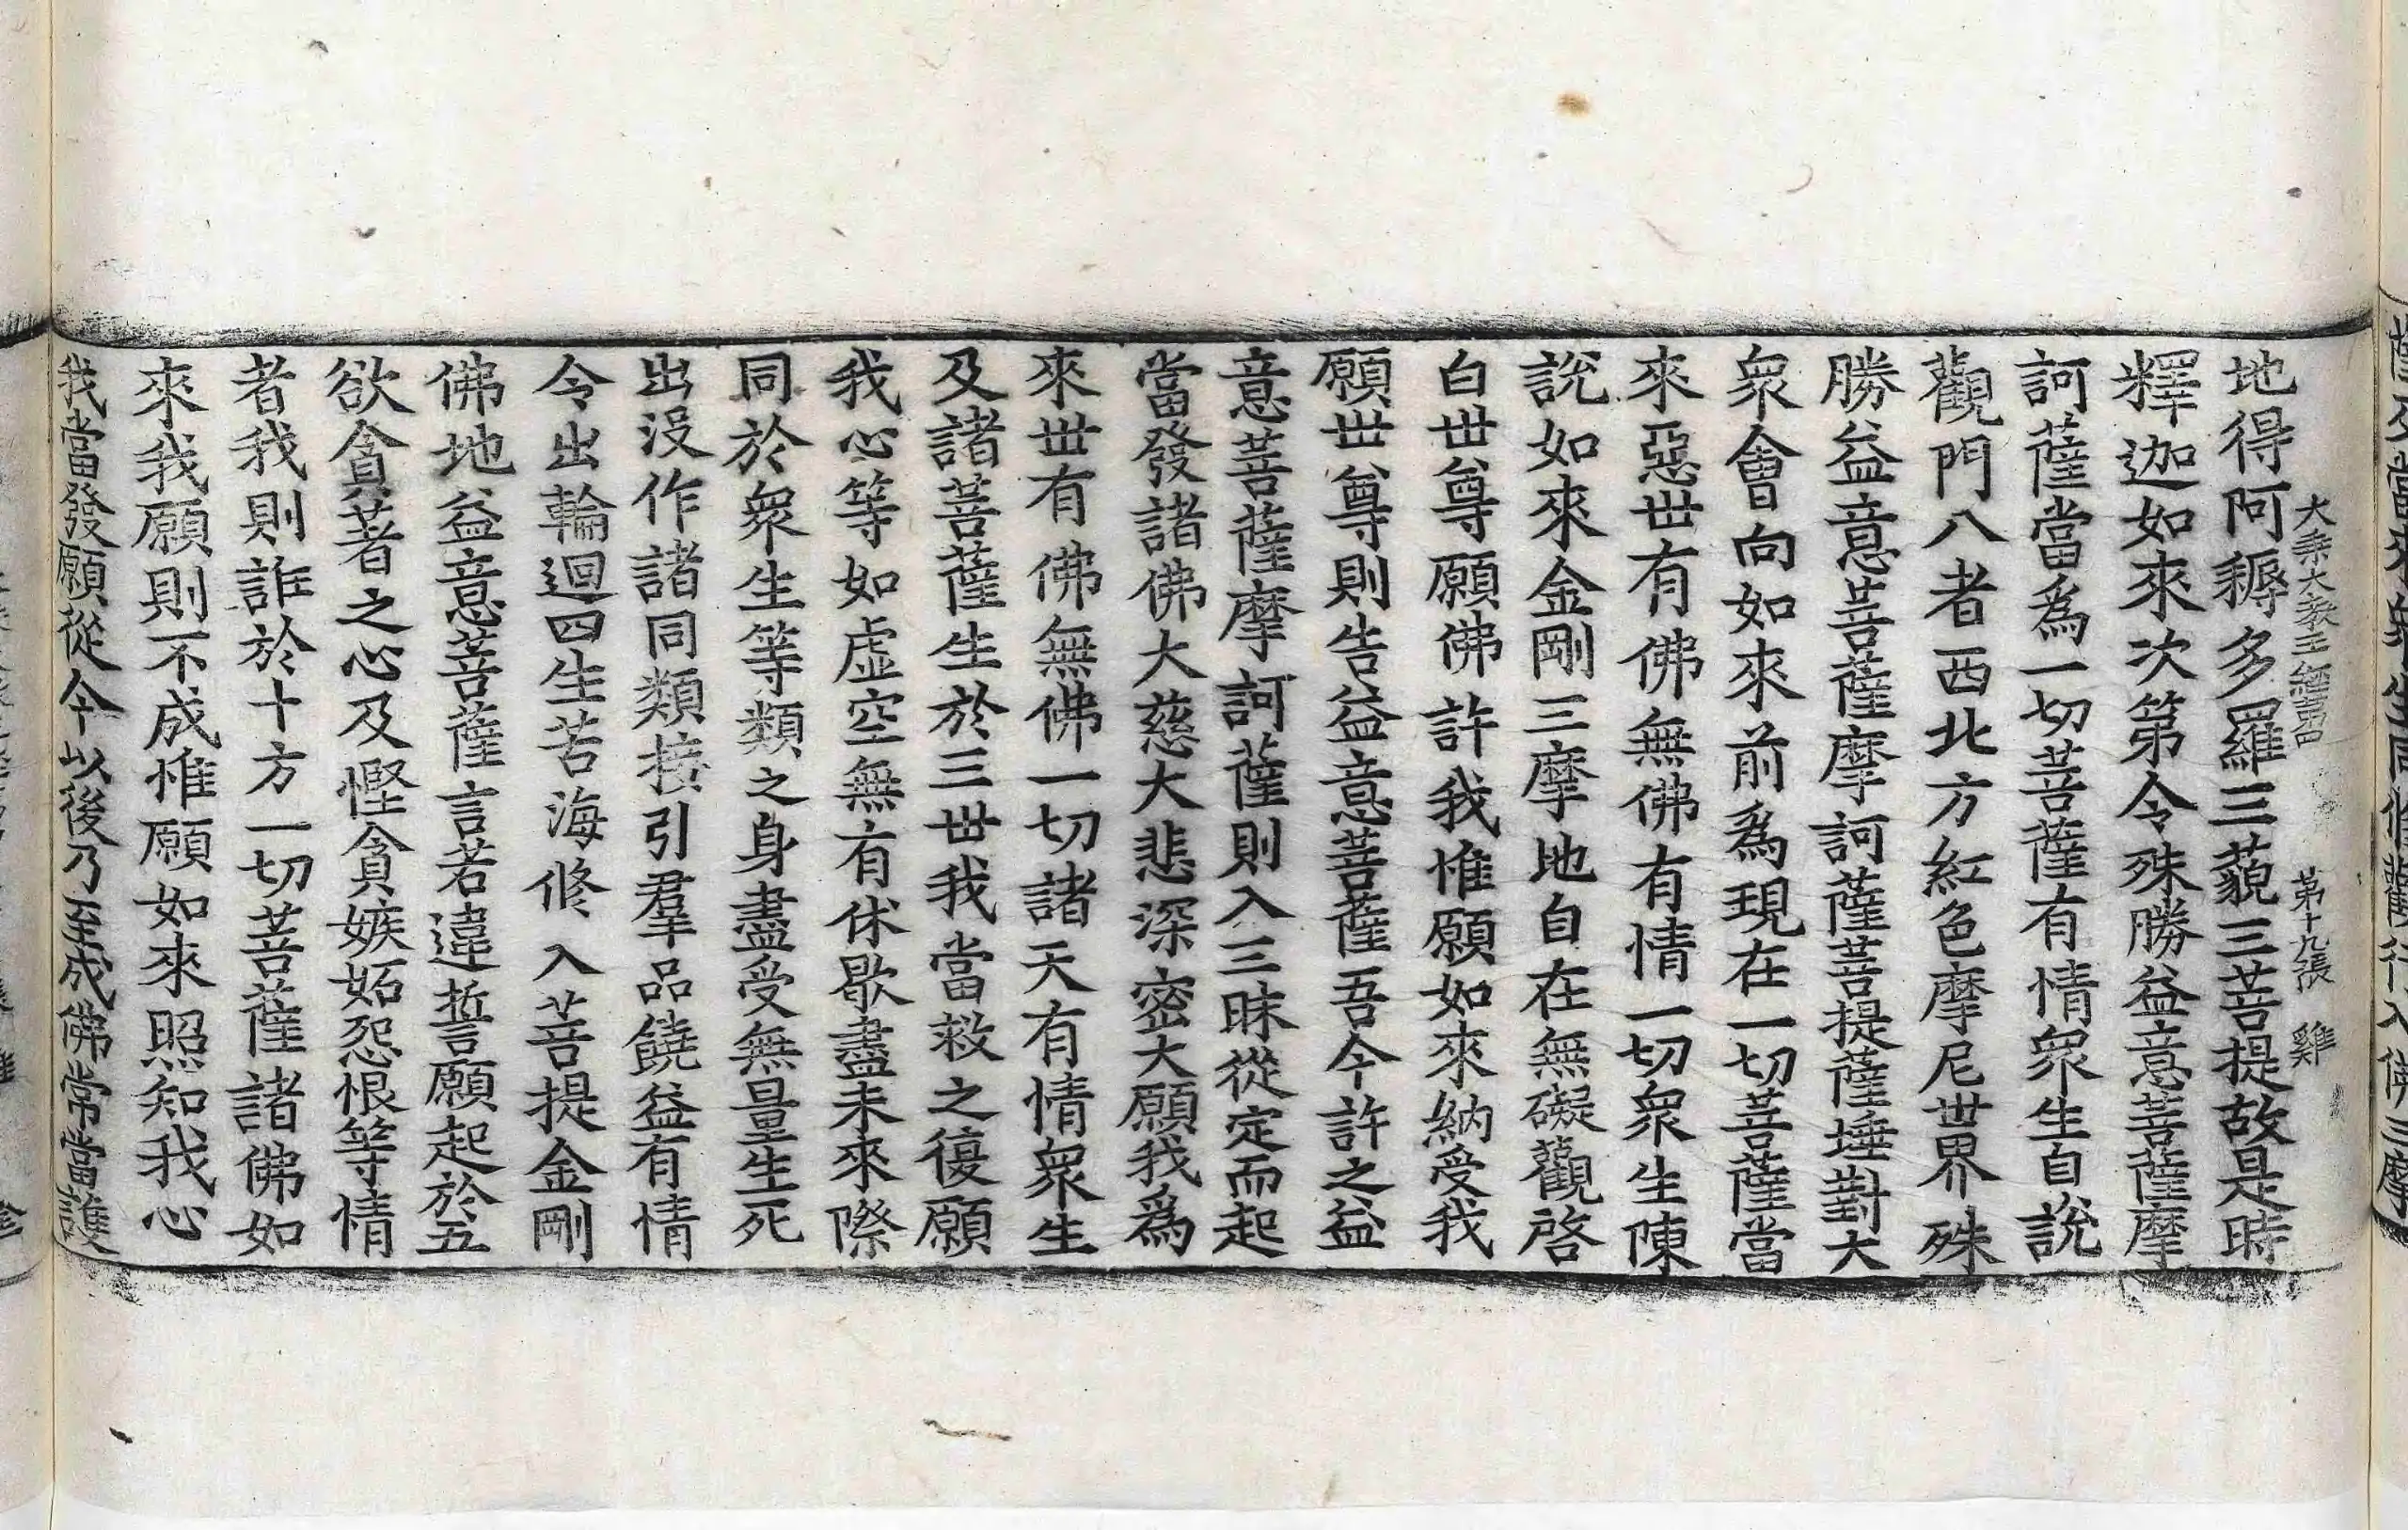 大乘大教王經 第十九張 雞
地得阿耨多羅三藐三菩提故是時
釋迦如來次第令殊勝益意菩薩摩
訶薩當爲一切菩薩有情衆生自說
觀門八者西北方紅色摩尼世界殊
勝益意菩薩摩訶薩菩提薩埵對大
衆會向如來前爲現在一切菩薩當
來惡世有佛無佛有情一切衆生陳
說如來金剛三摩地自在無礙觀啓
白世尊願佛許我惟願如來納受我
願世尊則告益意菩薩吾今許之益
意菩薩摩訶薩則入三昧從定而起
當發諸佛大慈大悲深密大願我爲
來世有佛無佛一切諸天有情衆生
及諸菩薩生於三世我當救之復願
我心等如虛空無有休歇盡未來際
同於衆生等類之身盡受無量生死
出沒作諸同類接引羣品饒益有情
令出輪迴四生苦海修入菩提金剛
佛地益意菩薩言若違誓願起於五
欲貪著之心及慳貪嫉妬怨恨等情
者我則誰於十方一切菩薩諸佛如
來我願則不成惟願如來照知我心
我當發願從今以後乃至成佛常當護